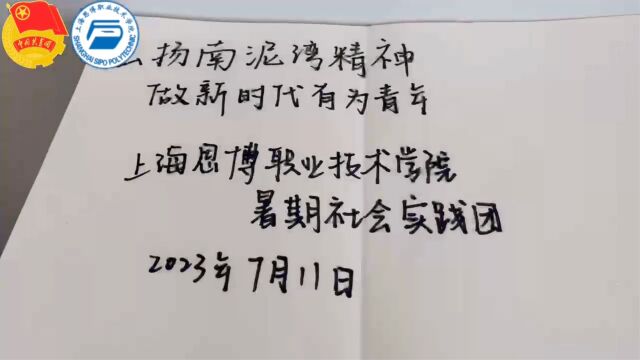 上海思博职业技术学院
SHANGHAI SIPO POLYTECHNIC
中国共青团
扬南泥湾精神
做新时代有为青年
上海思博职业技术学院
暑期社会实践团
2023年7月11日